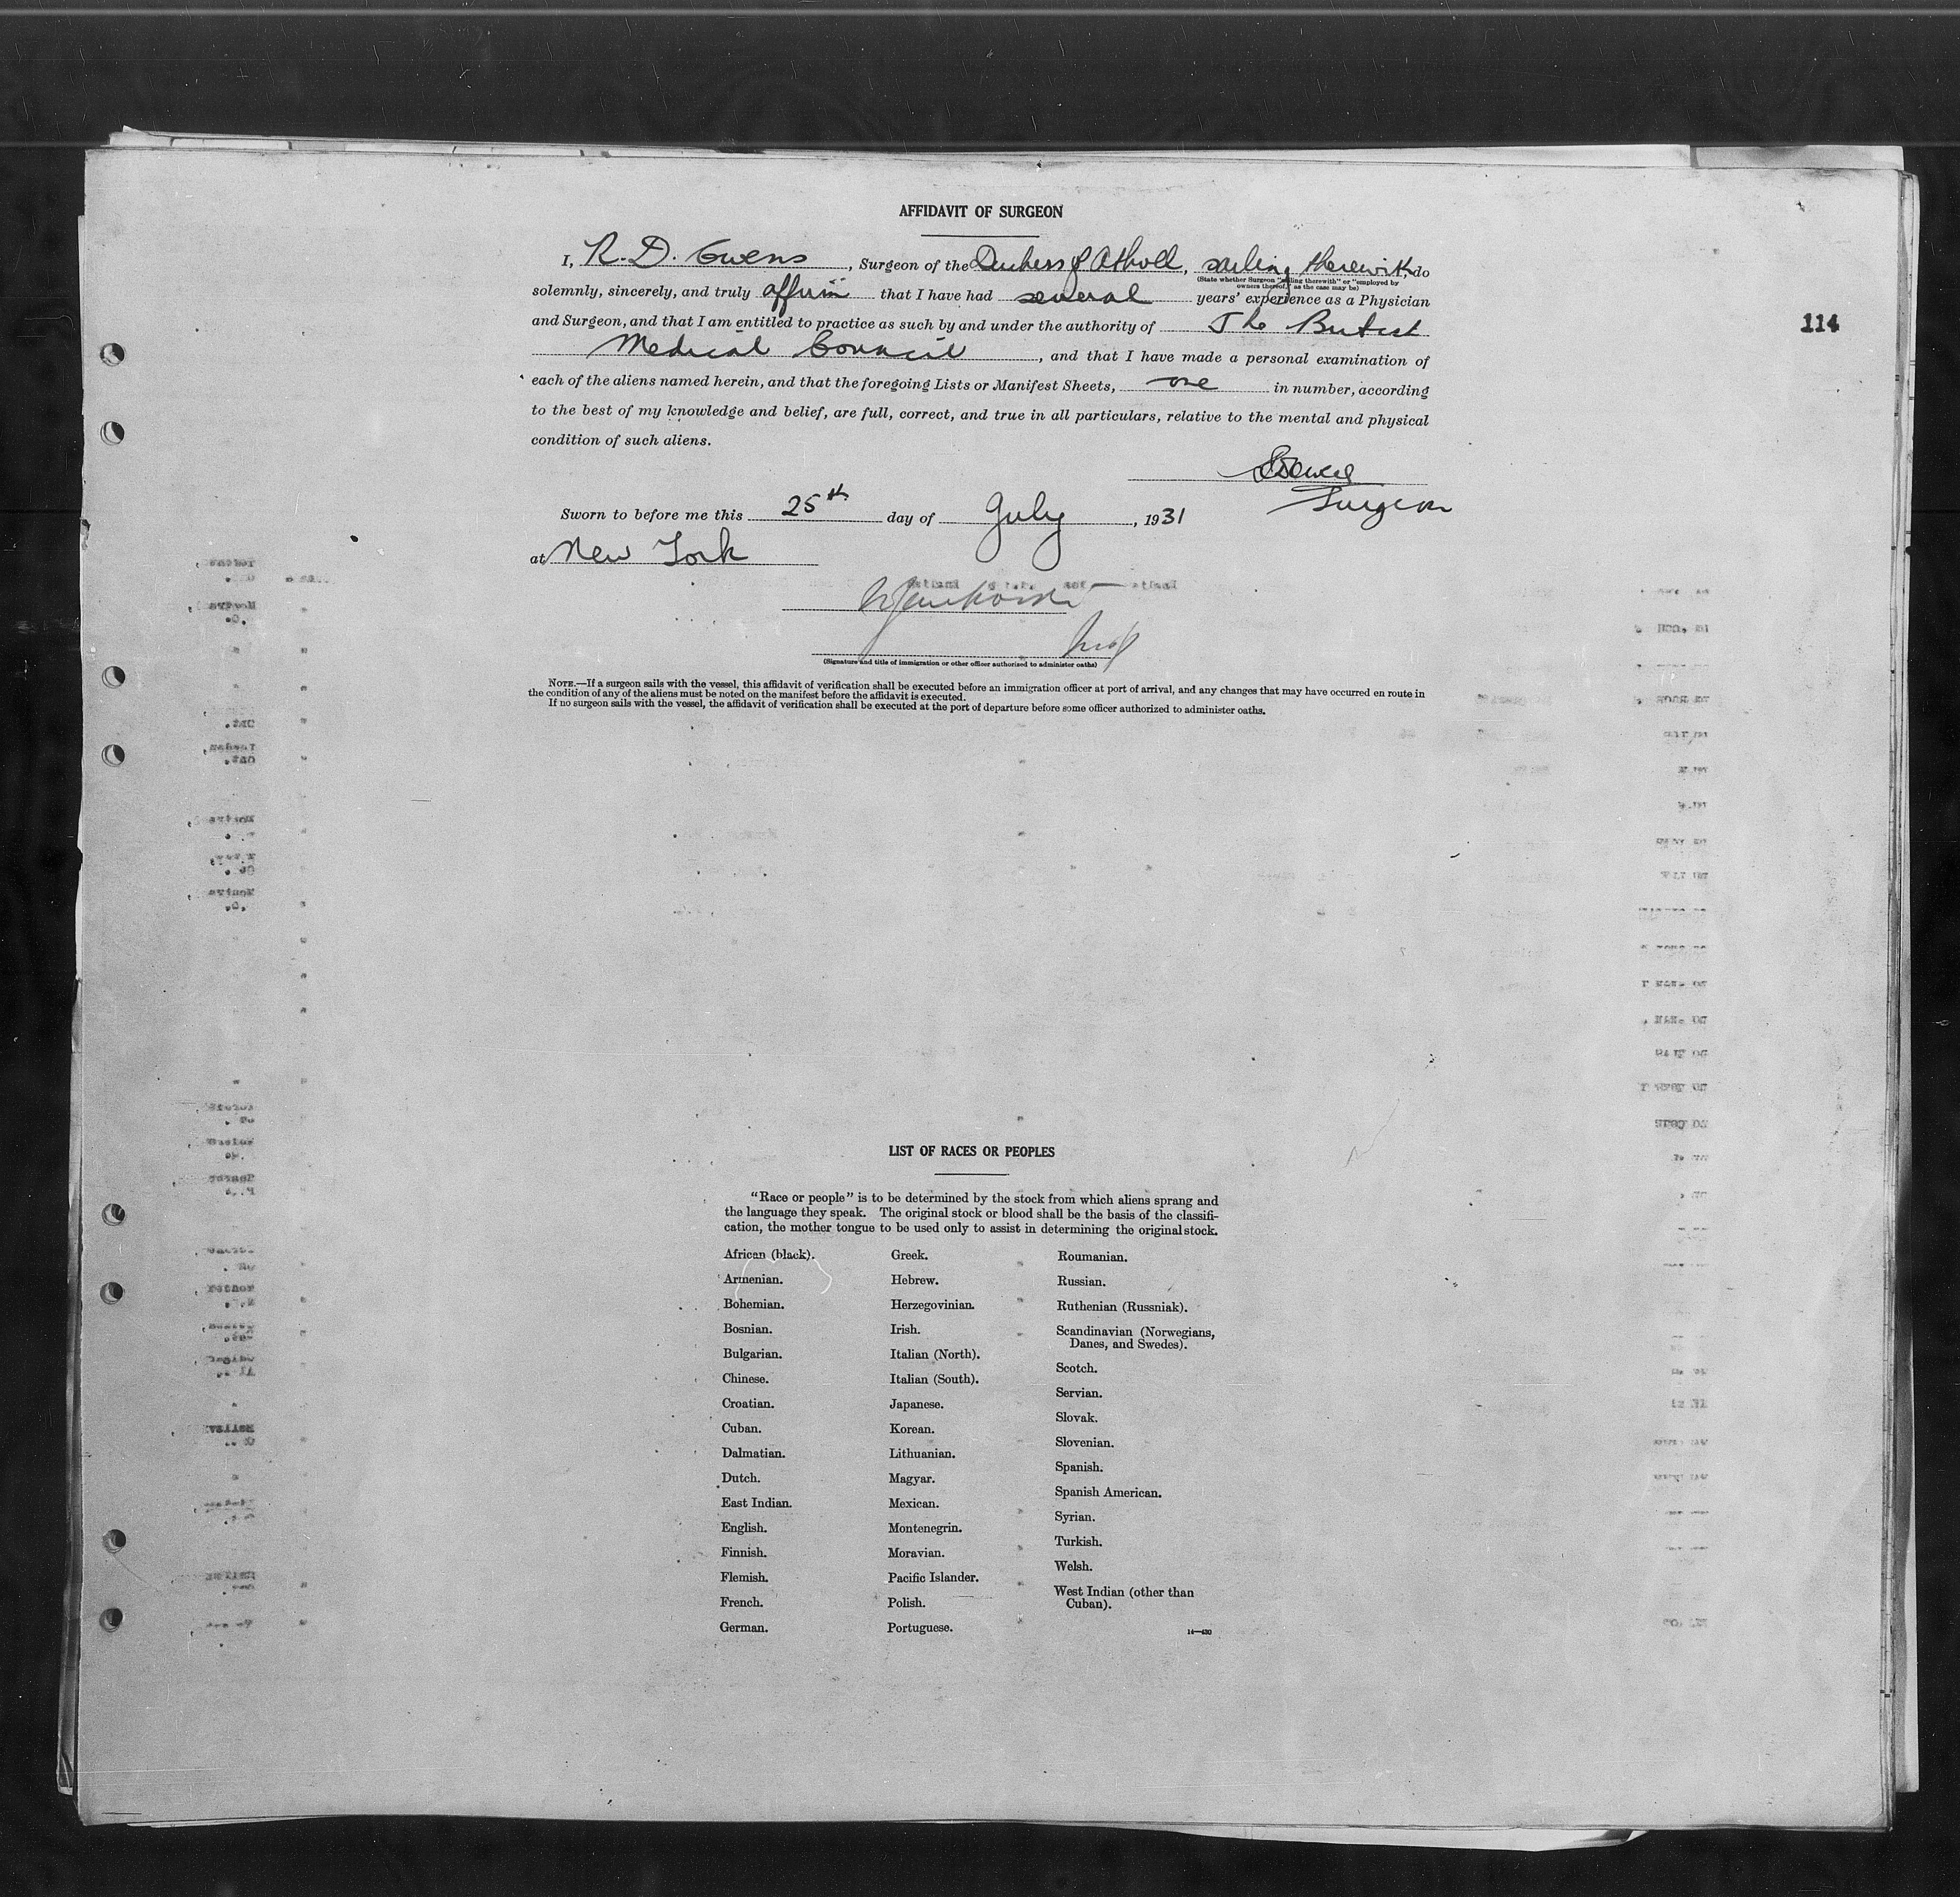 AFFIDAVIT OF SURGEON
I, R. D. Owens, Surgeon of the Duchess of Atholl, sailing therewith, do
(State whether Surgeon "sailing therewith" or "employed by
owners thereof," as the case may be)
solemnly, sincerely, and truly affirm that I have had several years' experience as a Physician
and Surgeon, and that I am entitled to practice as such by and under the authority of The British
114
Medical Council, and that I have made a personal examination of
each of the aliens named herein, and that the foregoing Lists or Manifest Sheets, one in number, according
to the best of my knowledge and belief, are full, correct, and true in all particulars, relative to the mental and physical
condition of such aliens.
Surgeon
Sworn to before me this 25th day of July, 1931
at New York
(Signature and title of immigration or other officer authorized to administer oaths)
NOTE.—If a surgeon sails with the vessel, this affidavit of verification shall be executed before an immigration officer at port of arrival, and any changes that may have occurred en route in
the condition of any of the aliens must be noted on the manifest before the affidavit is executed.
If no surgeon sails with the vessel, the affidavit of verification shall be executed at the port of departure before some officer authorized to administer oaths.
LIST OF RACES OR PEOPLES
"Race or people" is to be determined by the stock from which aliens sprang and
the language they speak. The original stock or blood shall be the basis of the classifi-
cation, the mother tongue to be used only to assist in determining the original stock.
African (black).
Armenian.
Bohemian.
Bosnian.
Bulgarian.
Chinese.
Croatian.
Cuban.
Dalmatian.
Dutch.
East Indian.
English.
Finnish.
Flemish.
French.
German.
Greek.
Hebrew.
Herzegovinian.
Irish.
Italian (North).
Italian (South).
Japanese.
Korean.
Lithuanian.
Magyar.
Mexican.
Montenegrin.
Moravian.
Pacific Islander.
Polish.
Portuguese.
Roumanian.
Russian.
Ruthenian (Russniak).
Scandinavian (Norwegians,
Danes, and Swedes).
Scotch.
Servian.
Slovak.
Slovenian.
Spanish.
Spanish American.
Syrian.
Turkish.
Welsh.
West Indian (other than
Cuban).
14—430